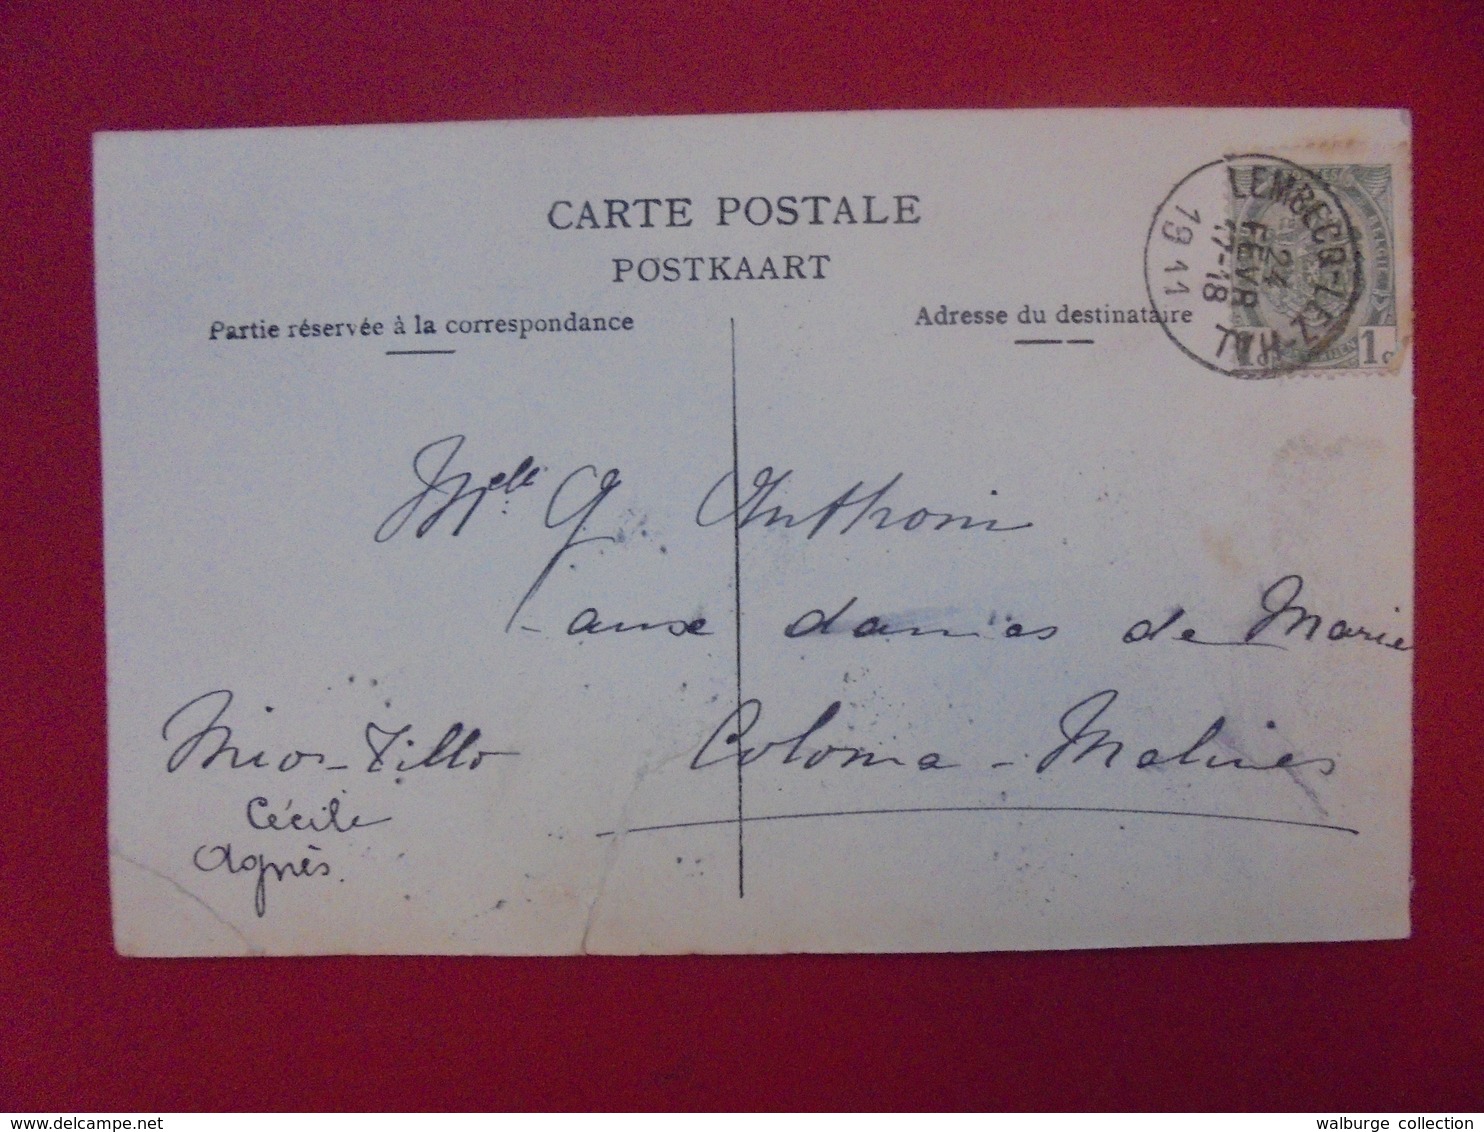 CARTE POSTALE
POSTKAART
Partie réservée à la correspondance
Adresse du destinataire
LEMBECQ-LEZ-HAL
24
FEVR
17-18
1911
1c
Melle G Anthoni
aux dames de Marie
Coloma - Malines
Cécile
Agnès.
walburge collection